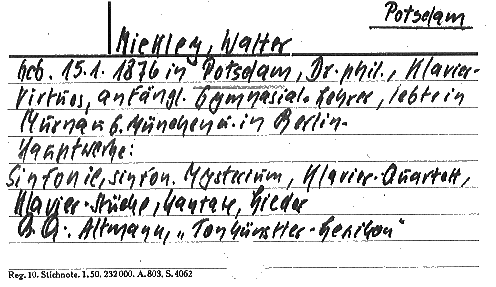 Potsdam
Nickley, Walter
Geb. 15.1. 1876 in Potsdam, Dr. phil., Klavier-
virtuos, anfängl. Gymnasial-Lehrer, lebte in
Murnau b. München u. in Berlin.
Hauptwerke:
Sinfonie, sinfon. Mysterium, Klavier-Quartett,
Klavier-Stücke, Kantate, Lieder
Altmann, „Tonkünstler-Lexikon"
Reg. 10. Stichnote. 1. 50. 232000. A. 803. S. 4062